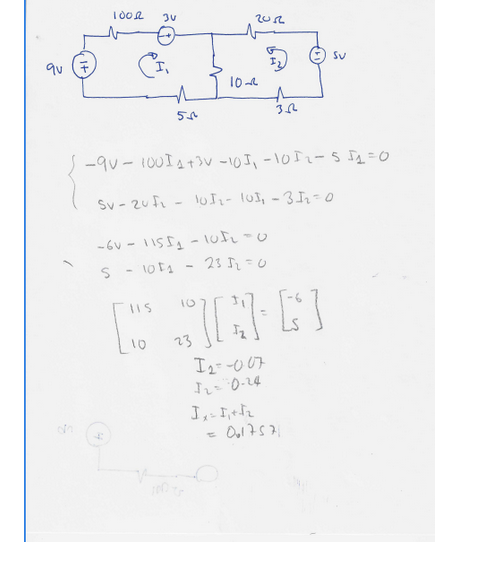 100Ω 3V 20Ω
9V I₁ 10Ω I₂ 5V
5Ω 3Ω
-9V - 100I₁ + 3V - 10I₁ - 10I₂ - 5I₁ = 0
5V - 20I₂ - 10I₂ - 10I₁ - 3I₂ = 0
-6V - 115I₁ - 10I₂ = 0
5 - 10I₁ - 23I₂ = 0
[115 10] [I₁] = [-6]
[10 23] [I₂] [5]
I₂ = -0.07
I₂ = 0.24
Iₓ = I₁ + I₂
= 0.1757